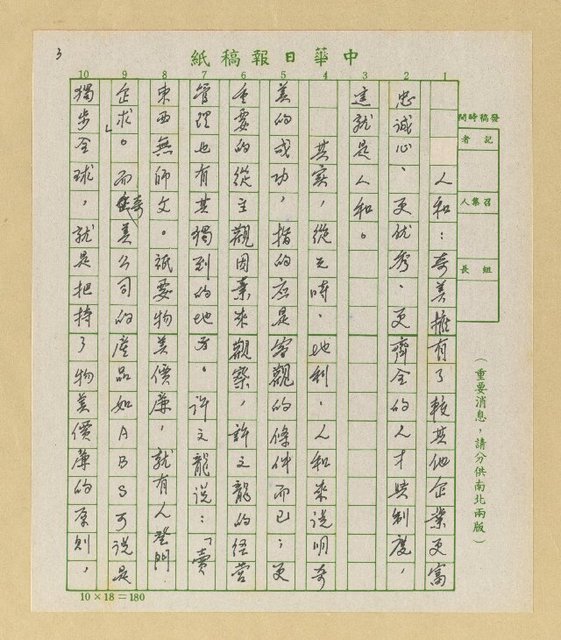 3
中華日報稿紙
發稿時間
記者
召集人
組長
（重要消息，請分供南北兩版）
1 2 3 4 5 6 7 8 9 10
人和：奇美擁有了較其他企業更富
忠誠心、更优秀、更齊全的人才與制度，
這就是人和。
其实，從天時、地利、人和來说明奇
美的成功，指的应是客觀的條件而已；更
重要的從主觀因素來觀察，許文龍的经营
管理也有其獨到的地方。许文龍说：「賣
東西無師文。祇要物美價廉，就有人登門
企求。」而奇美公司的產品如ABS可說是
獨步全球，就是把持了物美價廉的原則，
10×18＝180